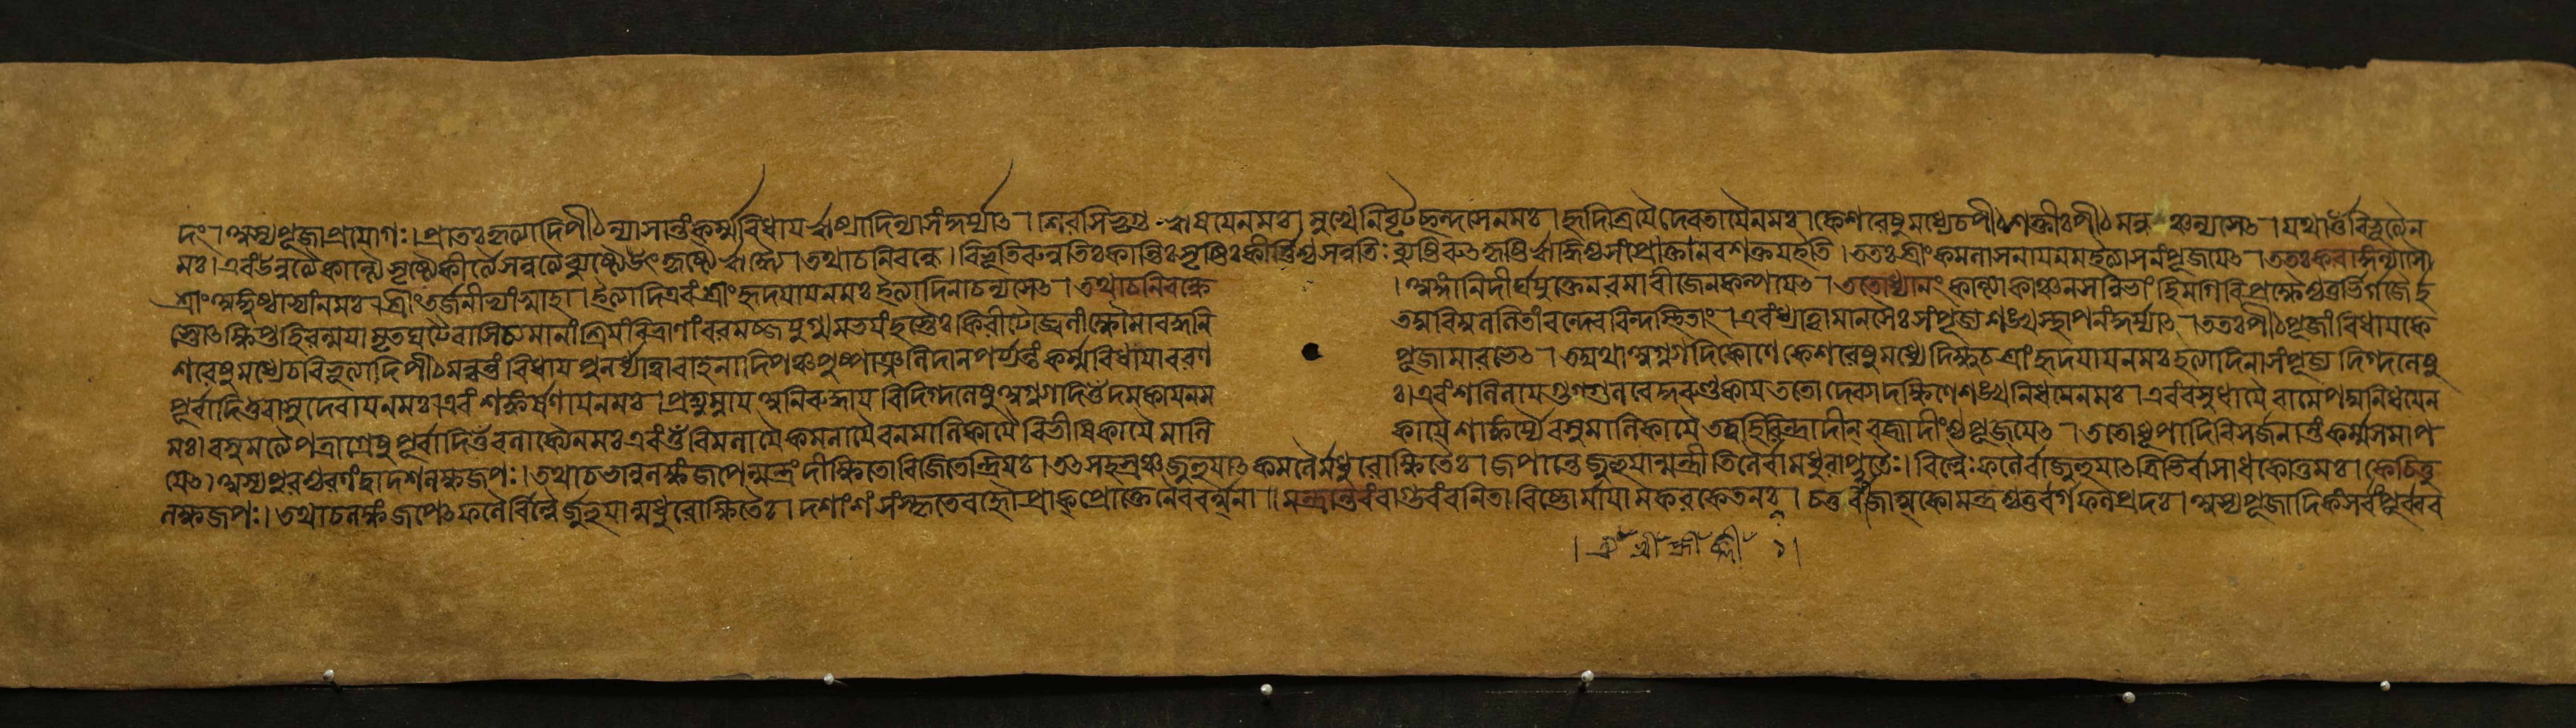 দং। অস্য পূজাপ্রয়োগঃ। প্রাতঃকৃত্যাদিপীঠন্যাসান্তং কর্ম্ম বিধায় ঋষ্যাদিন্যাসং কুর্য্যাৎ। শিরসি ভৃগুঋষয়ে নমঃ। মুখে নিবৃচ্ছন্দসে নমঃ। হৃদি শ্রিয়ৈ দেবতায়ৈ নমঃ। কেশরেষু মধ্যে চ পীঠশক্তীঃ পীঠমনুঞ্চ ন্যসেৎ। যথা ওঁ বিভূত্যৈ ন
মঃ। এবং উন্নত্যৈ কান্ত্যৈ সৃষ্ট্যৈ কীর্ত্ত্যৈ সন্নত্যৈ ব্যুষ্ট্যৈ উৎকৃষ্ট্যৈ ঋদ্ধ্যৈ। তথাচ নিবন্ধে। বিভূতিরুন্নতিঃ কান্তিঃ সৃষ্টিঃ কীর্ত্তিশ্চ সন্নতিঃ ব্যুষ্টিরুৎকৃষ্টিঋদ্ধিশ্চ সংপ্রোক্তা নব শক্তয় ইতি। ততঃ শ্রীং কমলাসনায় নম ইত্যাসনং পূজয়েৎ। ততঃ করাঙ্গন্যাসৌ
শ্রাং অঙ্গুষ্ঠাভ্যাং নমঃ। শ্রীং তর্জ্জনীভ্যাং স্বাহা। ইত্যাদি এবং শ্রাং হৃদয়ায় নমঃ ইত্যাদিনা চ ন্যসেৎ। তথাচ নিবন্ধে। অঙ্গানি দীর্ঘযুক্তেন রমাবীজেন কল্পয়েৎ। ততো ধ্যানং কান্ত্যা কাঞ্চনসন্নিভাং হিমগিরিপ্রখ্যৈশ্চতুর্ভির্গজৈর্হ
স্তোৎক্ষিপ্তহিরন্ময়ামৃতঘটৈরাসিচ্যমানাং শ্রিয়ং বিভ্রাণাং বরমব্জযুগ্মমভয়ং হস্তৈঃ কিরীটোজ্জ্বলাং ক্ষৌমাবদ্ধনি তম্ববিম্বললিতাং বন্দেঽরবিন্দস্থিতাং। এবং ধ্যাত্বা মানসৈঃ সংপূজ্য শঙ্খস্থাপনং কুর্য্যাৎ। ততঃ পীঠপূজাং বিধায় কে
শরেষু মধ্যে চ বিভূত্যাদিপীঠমন্বন্তং বিধায় পুনর্ধ্যাত্বাবাহনাদিপঞ্চপুষ্পাঞ্জলিদানপর্য্যন্তং কর্ম্ম বিধায়াবরণ পূজামারভেৎ। তদ্যথা অগ্ন্যাদিকোণে কেশরেষু মধ্যে দিক্ষু চ শ্রাং হৃদয়ায় নমঃ ইত্যাদিনা সংপূজ্য দিগ্দলেষু
পূর্ব্বাদি ওঁ বাসুদেবায় নমঃ। এবং সঙ্কর্ষণায় নমঃ। প্রদ্যুম্নায় অনিরুদ্ধায় বিদিগ্দলেষু অগ্ন্যাদি ওঁ দমকায় নম ঃ। এবং শলিলায় গুগ্গুলবে কুরুণ্টকায় ততো দেব্যা দক্ষিণে শঙ্খনিধয়ে নমঃ। এবং বসুধায়ৈ বামে পদ্মনিধয়ে ন
মঃ। বসুমত্যৈ পত্রাগ্রেষু পূর্ব্বাদি ওঁ বলাক্যৈ নমঃ এবং ওঁ বিমলায়ৈ কমলায়ৈ বনমালিকায়ৈ বিভীষিকায়ৈ মালি কায়ৈ শাঙ্কর্য্যৈ বসুমালিকায়ৈ তদ্বহিরিন্দ্রাদীন্ বজ্রাদীংশ্চ পূজয়েৎ। ততো ধূপাদিবিসর্জ্জনান্তং কর্ম্ম সমাপ
য়েৎ। অস্য পুরশ্চরণং দ্বাদশলক্ষজপঃ। তথাচ ভানুলক্ষং জপেন্মন্ত্রং দীক্ষিতো বিজিতেন্দ্রিয়ঃ। তৎসহস্রঞ্চ জুহুয়াৎ কমলৈর্মধুরোক্ষিতৈঃ। জপান্তে জুহুয়ান্মন্ত্রী তিলৈর্বা মধুরাপ্লুতৈঃ। বিল্বৈঃ ফলৈর্বা জুহুয়াৎ ত্রিভির্বা সাধকোত্তমঃ। কেচিত্তু
লক্ষজপঃ। তথাচ লক্ষং জপেৎ ফলৈর্বিল্বৈর্জুহুয়ান্মধুরোক্ষিতৈঃ। দশাংশং সংস্কৃতে বহ্নৌ প্রাক্প্রোক্তেনৈব বর্ত্মনা॥ মন্ত্রান্তরং বাগ্ভবং বনিতা বিষ্ণোর্মায়া মকরকেতনঃ। চতুর্বর্ণাত্মকো মন্ত্রশ্চতুর্ব্বর্গফলপ্রদঃ। অস্য পূজাদিকং সর্ব্বং পূর্ব্বব
। ঐঁ শ্রীঁ হ্রীঁ ক্লীঁ ১।